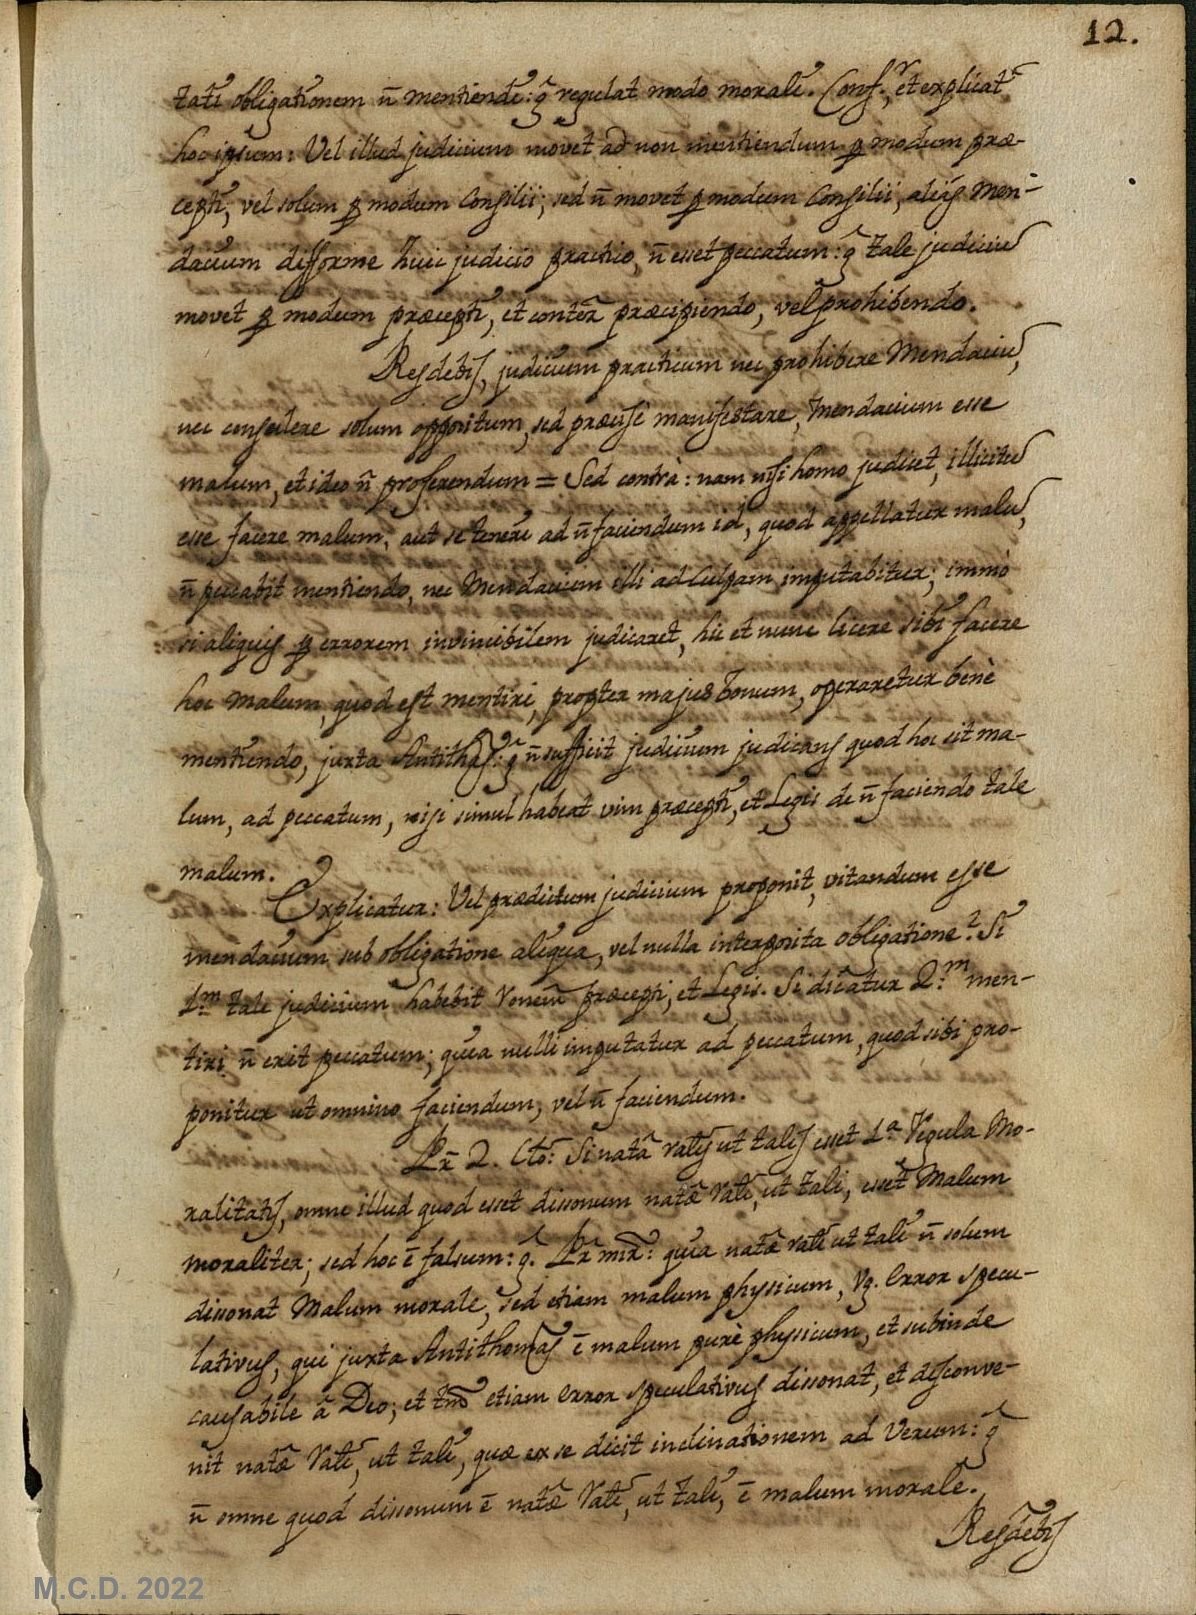 12.
tate obligationem ñ mentiendi: g̃ regulat modo morali. Conf.r, et explicat̃
hoc ipsum: Vel illud judicium movet ad non mentiendum ꝑ modum præ-
cepti, vel solum ꝑ modum Consilii; sed ñ movet ꝑ modum Consilii, aliàs Men-
dacium difforme huic judicio practico, ñ esset peccatum: g̃ tale judiciũ
movet ꝑ modum præcepti, et conter̃ præcipiendo, vel prohibendo.
Resdebis, judicium practicum nec prohibere Mendaciũ,
nec consulere solum oppositum, sed præcisè manifestare, Mendacium esse
malum, et ideo ñ proferendum = Sed contrà: nam nisi homo judicet, illicitũ
esse facere malum, aut se teneri ad ñ faciendum id, quod appellatur malũ,
ñ peccabit mentiendo, nec Mendacium illi ad Culpam imputabitur; immò
si aliquis ꝑ errorem invincibilem judicaret, hic et nunc licere sibi facere
hoc Malum, quod est mentiri, propter majus bonum, operaretur benè
mentiendo, juxta Antithas: g̃ ñ sufficit judicium judicans quod hoc sit ma-
lum, ad peccatum, nisi simul habeat vim præcepti, et Legis de ñ faciendo tale
malum.
Explicatur: Vel prædictum judicium proponit, vitandum esse
mendacium sub obligatione aliqua, vel nulla interposita obligatione? Si
1.m tale judicium habebit ronem præcepti, et Legis. Si dicatur 2.m men-
tiri ñ erit peccatum; quia nulli imputatur ad peccatum, quod sibi pro-
ponitur ut omnino faciendum, vel ñ faciendum.
Pr̃ 2. Cto: Si natã ralis ut talis esset 1.a Regula Mo-
ralitatis, omne illud quod esset dissonum natæ rali, ut tali, esset Malum
moraliter; sed hoc ẽ falsum: g̃. Pr̃ mir̃: quia natæ rali ut tali ñ solum
dissonat Malum morale, sed etiam malum physicum, Vg. Error specu-
lativus, qui juxta Antithomas ẽ malum purè physicum, et subinde
causabile à Deo; et tm̃ etiam Error speculativus dissonat, et disconve-
nit natæ rali, ut tali, quæ ex se dicit inclinationem ad Verum: g̃
ñ omne quod dissonum ẽ natæ rali, ut tali, ẽ malum morale.
Resdebis
M.C.D. 2022